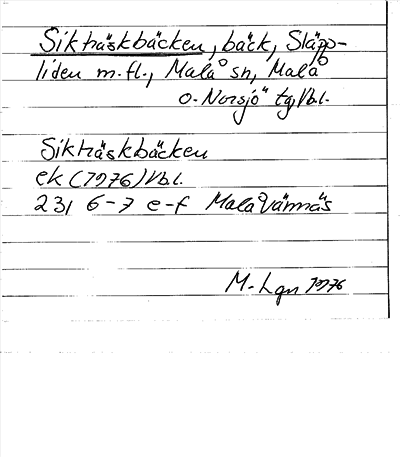 Sikträskbäcken, bäck, Släpp-
liden m.fl., Malå sn, Malå
o. Norsjö tg, Vbl.
Sikträskbäcken
ek (1976) Vbl.
23I 6-7 e-f Malåvännäs
M. Lgn 1976